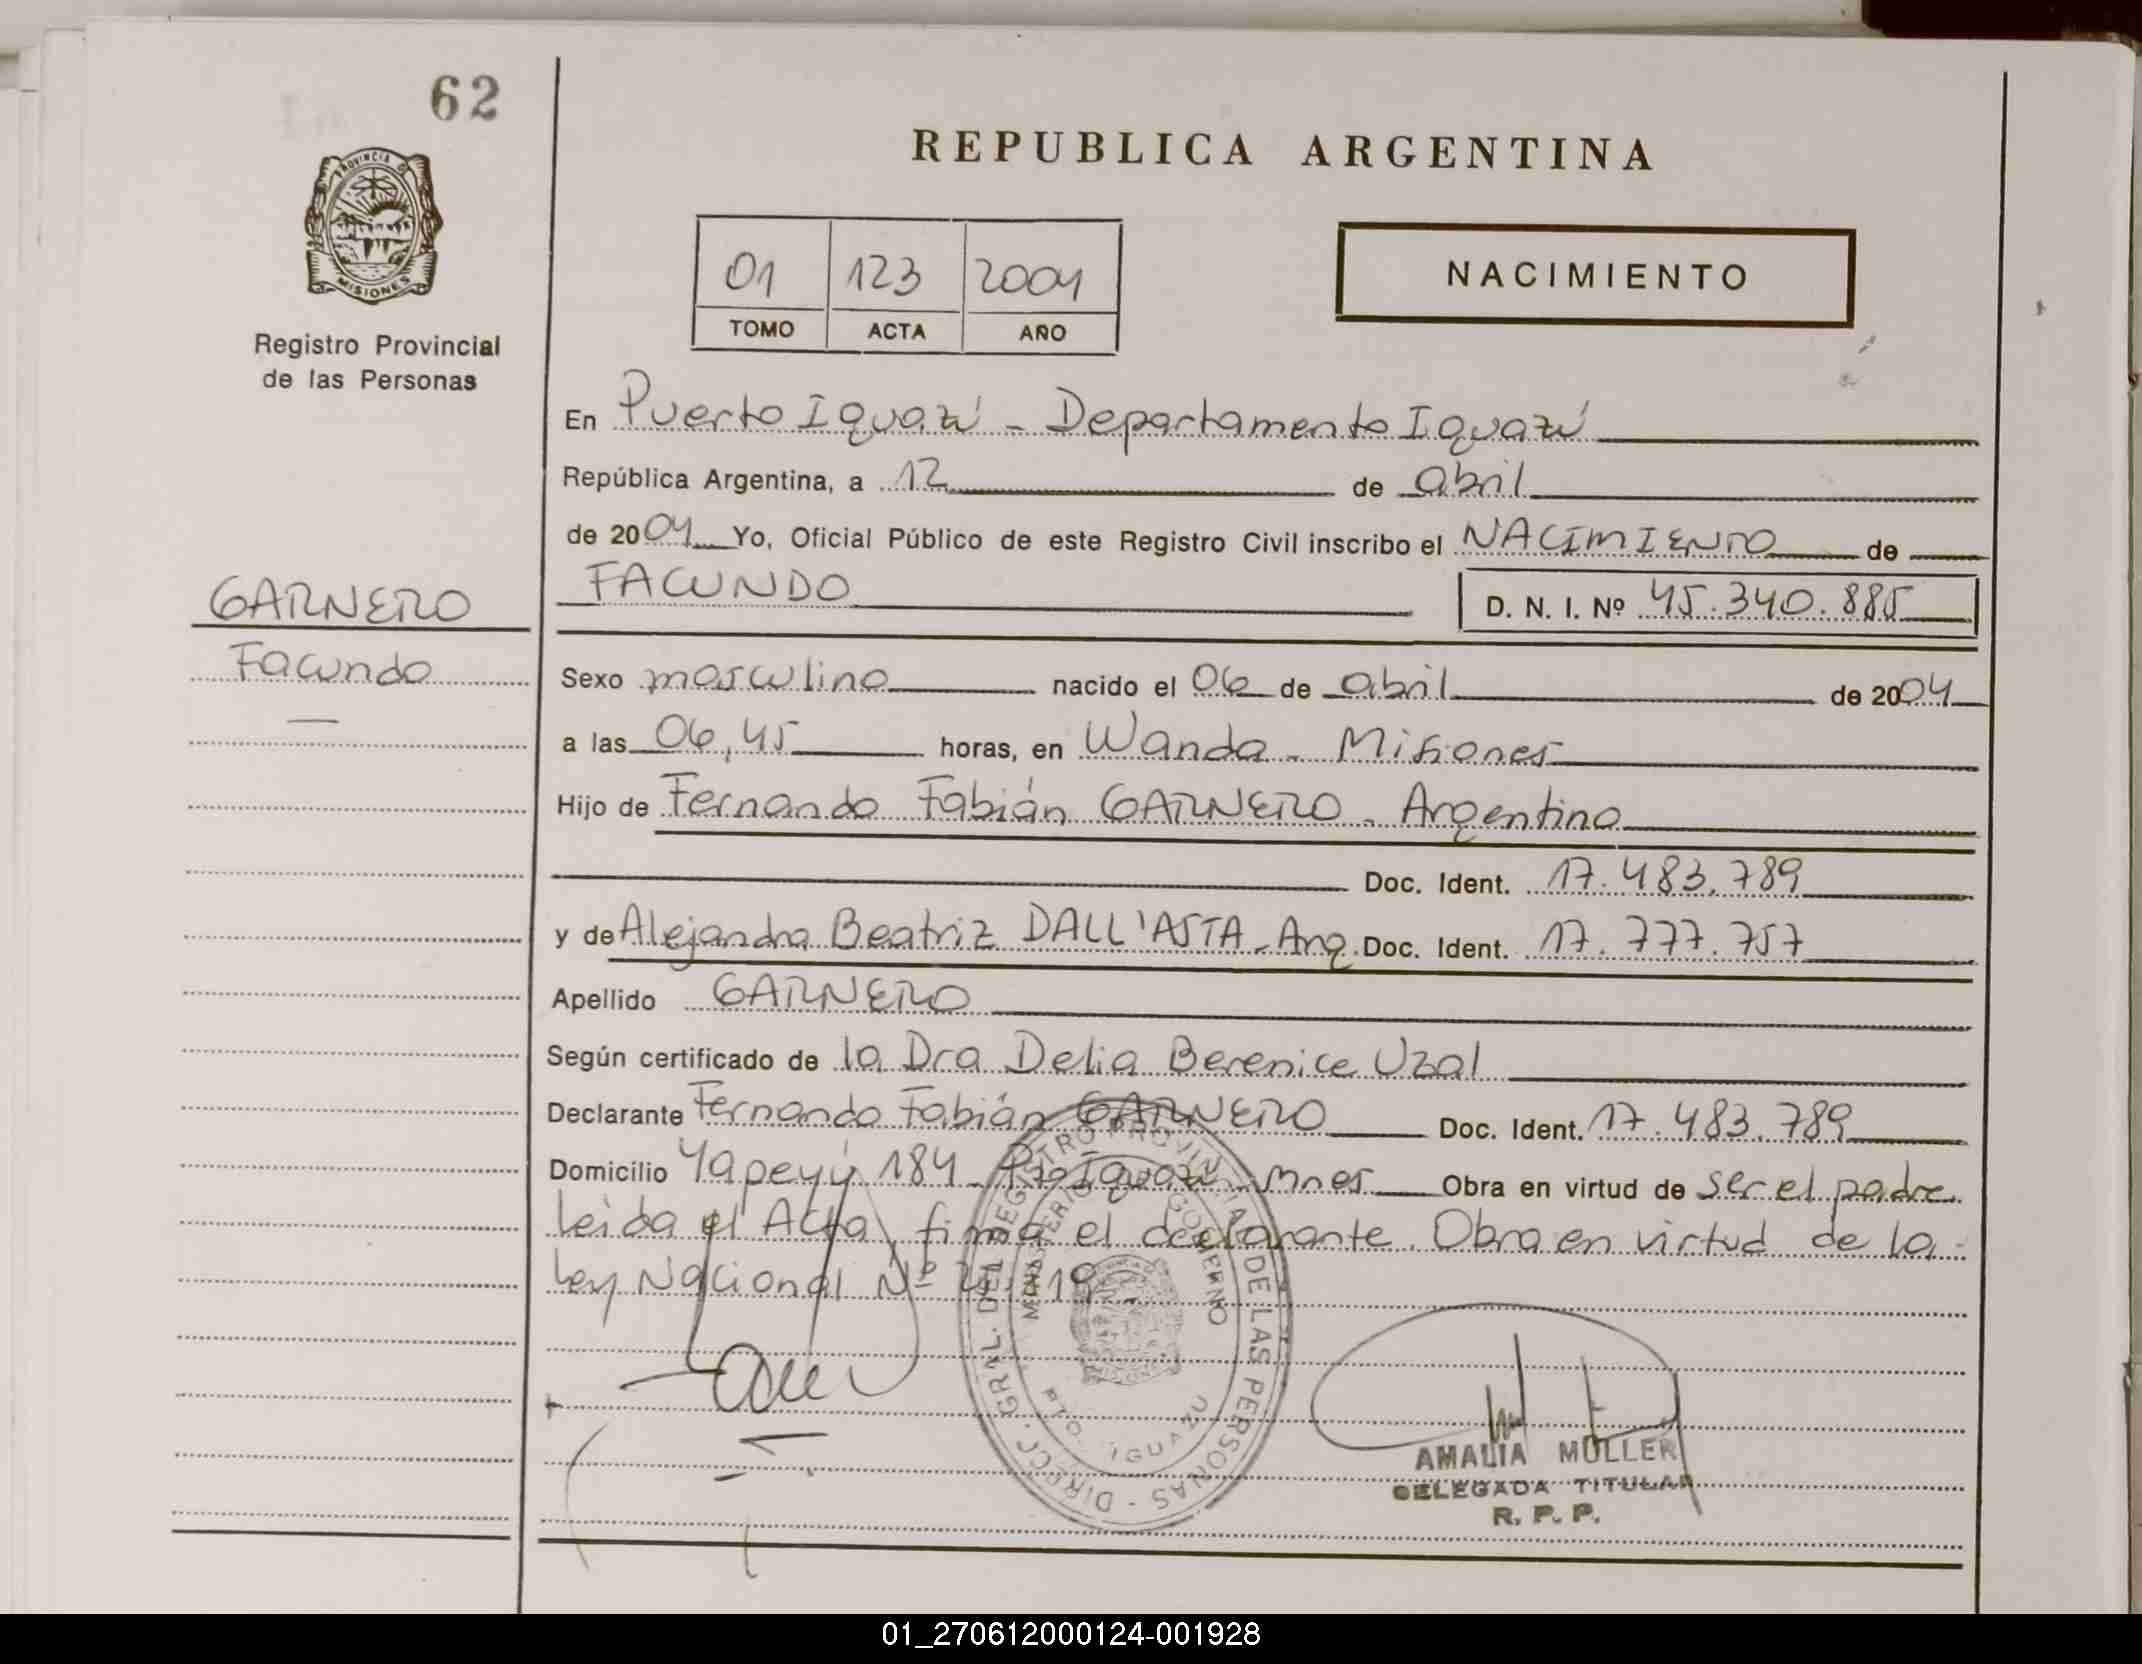 62
PROVINCIA DE
MISIONES
Registro Provincial
de las Personas
GARNERO
Facundo
REPUBLICA ARGENTINA
01 123 2004
TOMO ACTA AÑO
NACIMIENTO
En Puerto Iguazú - Departamento Iguazú
República Argentina, a 12 de abril
de 2004 Yo, Oficial Público de este Registro Civil inscribo el NACIMIENTO de
FACUNDO D. N. I. Nº 45.340.885
Sexo masculino nacido el 06 de abril de 2004
a las 06,45 horas, en Wanda - Misiones
Hijo de Fernando Fabián GARNERO - Argentino
Doc. Ident. 17.483.789
y de Alejandra Beatriz DALL'ASTA - Arg. Doc. Ident. 17.777.757
Apellido GARNERO
Según certificado de la Dra Delia Berenice Uzal
Declarante Fernando Fabián GARNERO Doc. Ident. 17.483.789
Domicilio Yapeyú 184 - Pto Iguazú - Mnes Obra en virtud de ser el padre
Leida el Acta, firma el declarante. Obra en virtud de la
Ley Nacional Nº
DIRECC. GRAL. DEL REGISTRO PROVINCIAL DE LAS PERSONAS -
MINISTERIO DE GOBIERNO
PTO. IGUAZU
AMALIA MULLER
DELEGADA TITULAR
R. P. P.
01_270612000124-001928